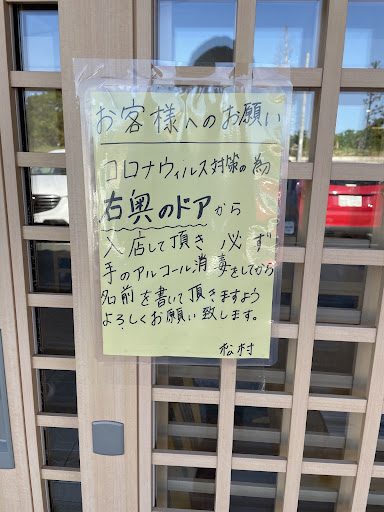 お客様へのお願い
コロナウィルス対策の為
右奥のドアから
入店して頂き 必ず
手のアルコール消毒をしてから
名前を書いて頂きますよう
よろしくお願い致します。
松村